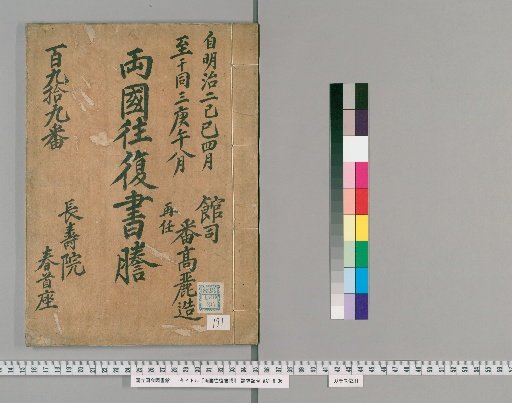 自明治二己巳四月
至于同三庚午八月
館司
再任
番高麗造
両國往復書謄
百九拾九番
長壽院
春首座
191